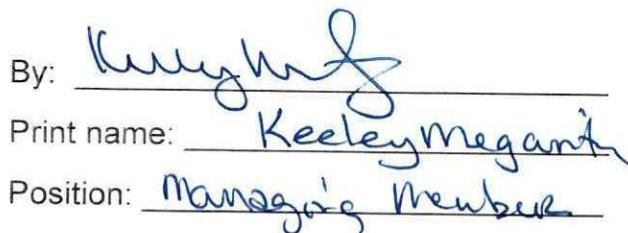 By:
Print name: Keeley Megarity
Position: Managing Member